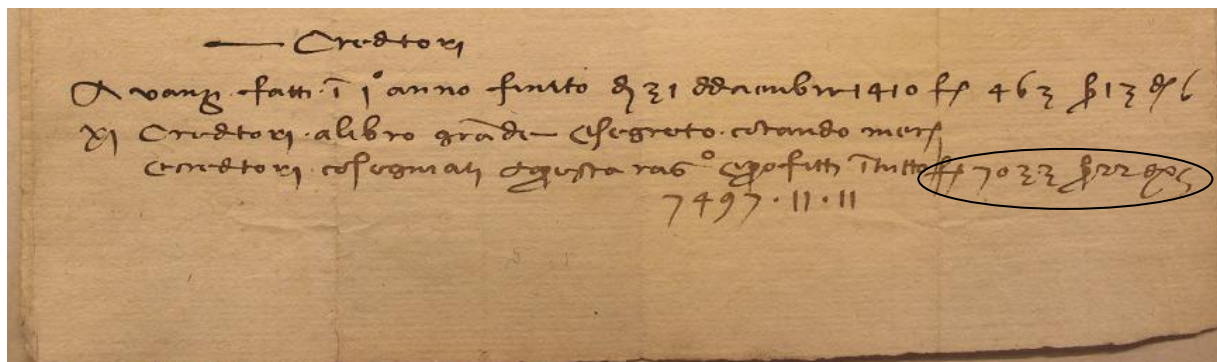 Creditori
Avanzi fatti ī 1º anno finito dì 31 didicienbre 1410 f 463 s 13 d 6
XI Creditori a libro grāde e segreto cotando
e creditori cosegniati questa ragº profitti ītutto f 7033 s 22 d 5
7497 · 11 · 11